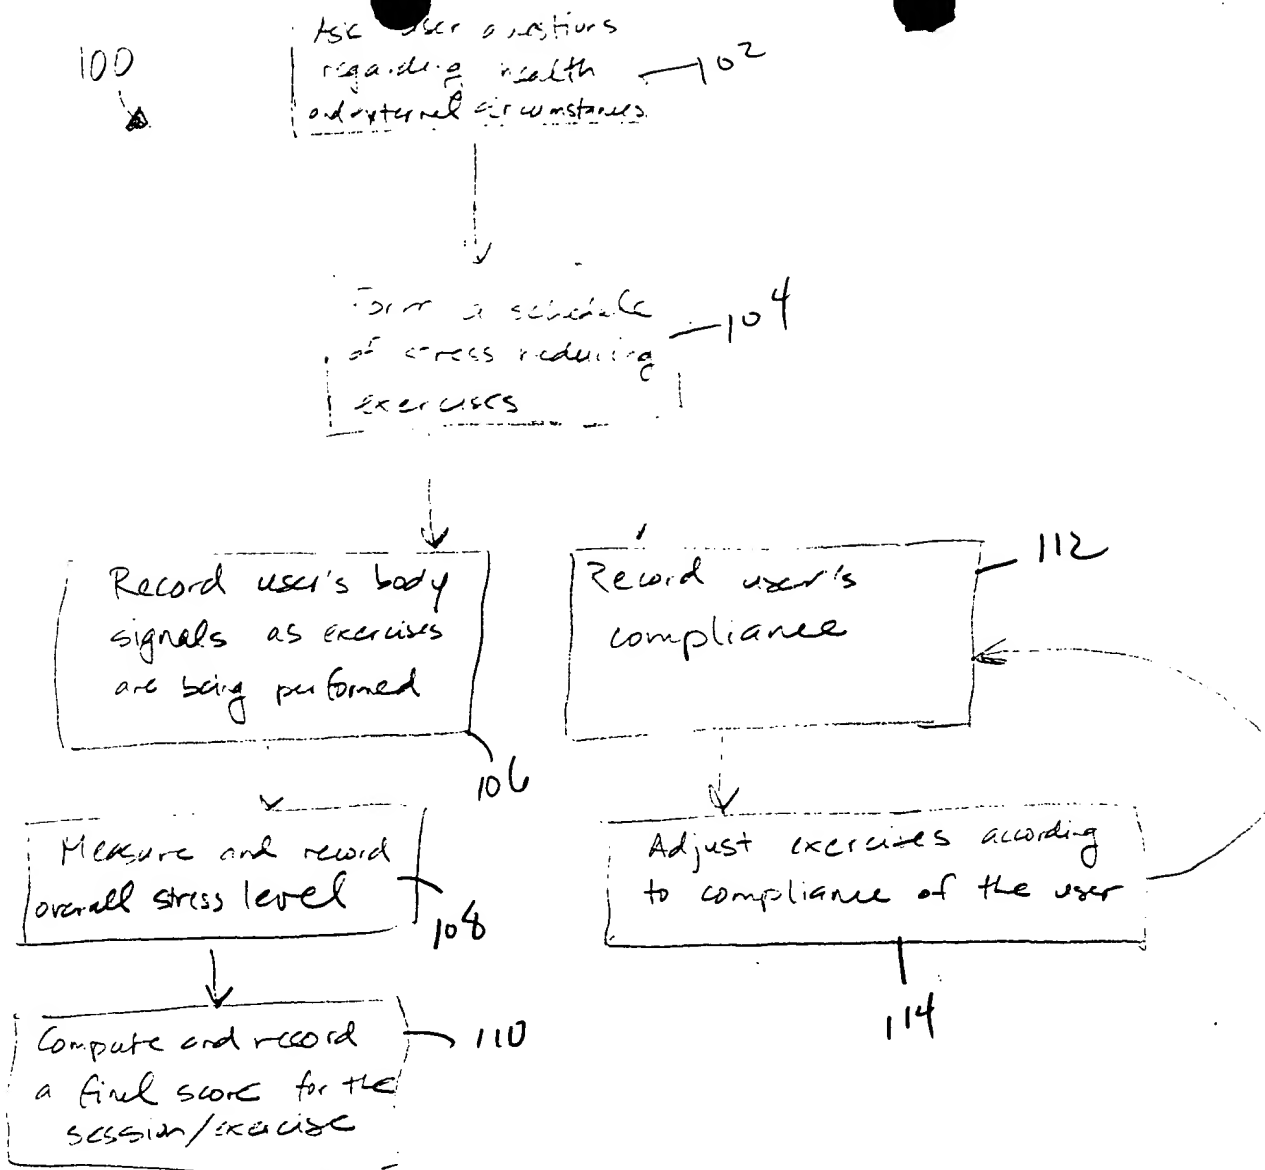 100
Ask user questions
regarding health
and external circumstances
102
Form a schedule
of stress reducing
exercises
104
Record user's body
signals as exercises
are being performed
106
Record user's
compliance
112
Measure and record
overall stress level
108
Adjust exercises according
to compliance of the user
114
Compute and record
a final score for the
session/exercise
110